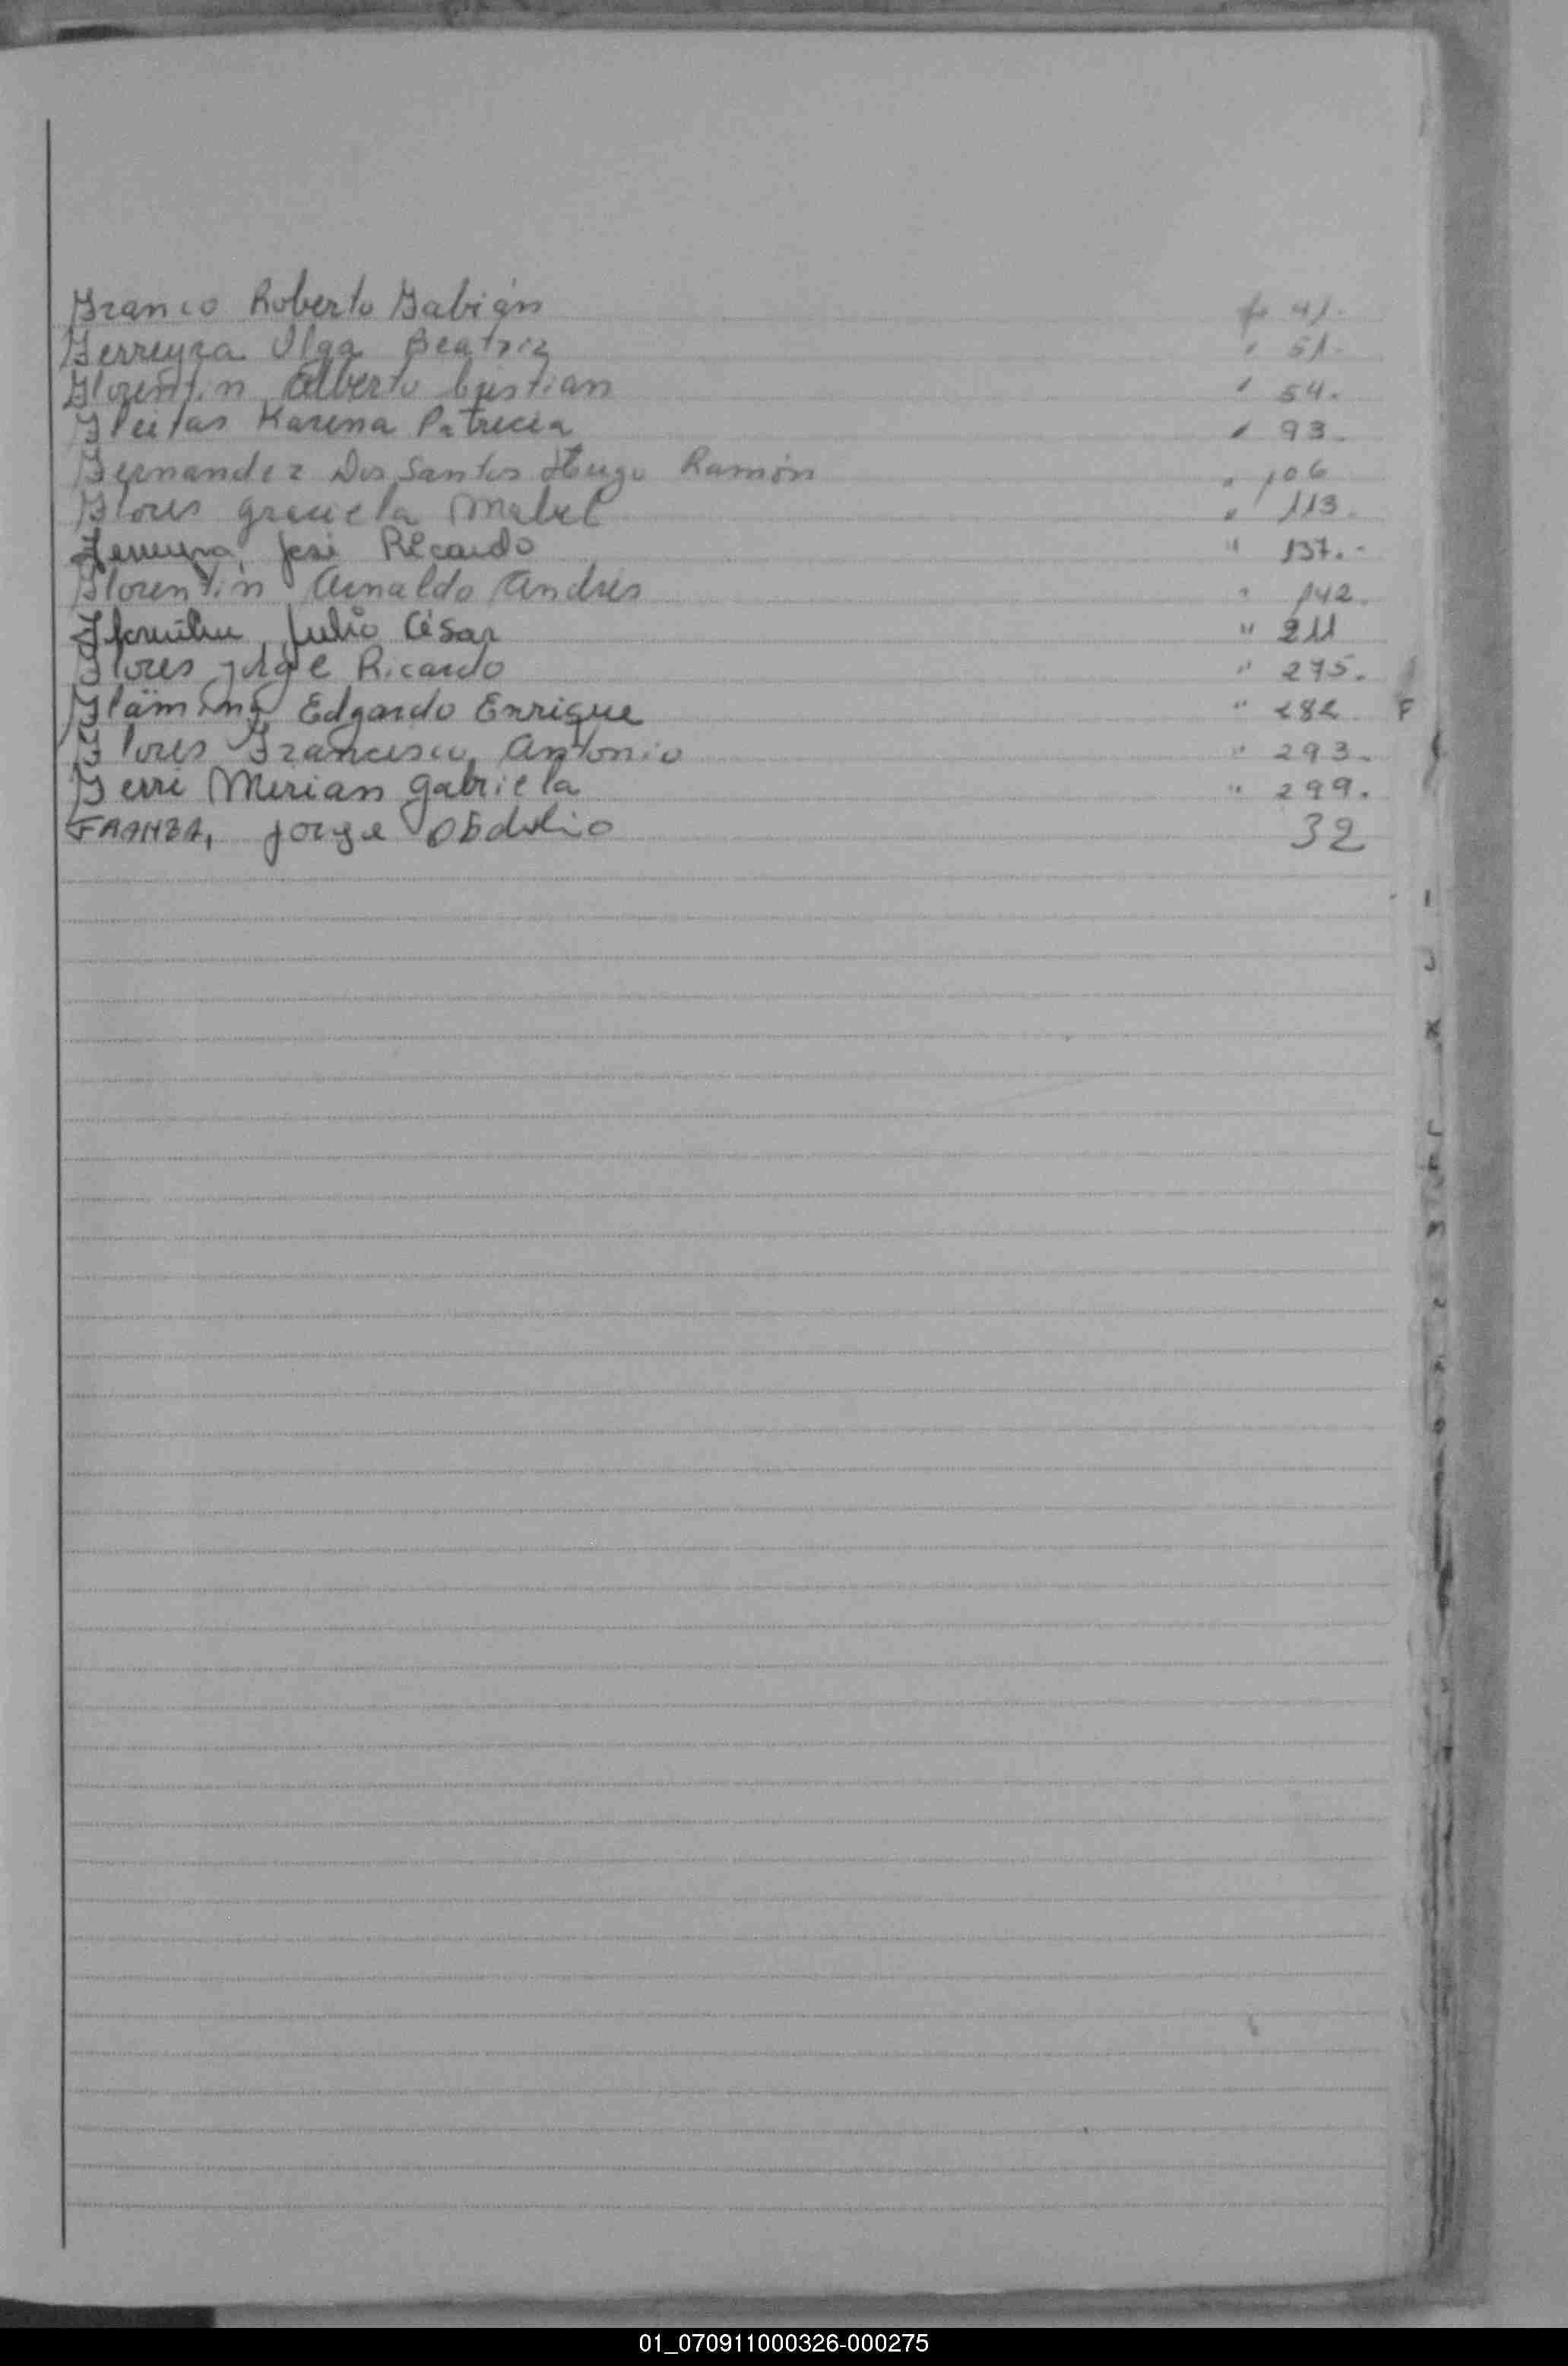 Franco Roberto Fabián fo 41.
Ferreyra Olga Beatriz " 51.
Florentín Alberto Cristian " 54.
Fleitas Karina Patricia " 93.
Fernandez Dos Santos Hugo Ramón " 106
Flores Graciela Mabel " 113.
Ferreyra José Ricardo " 137.-
Florentín Arnaldo Andrés " 142.
Julio César " 211
Flores Jorge Ricardo " 275.
Edgardo Enrique " 282 F
Flores Francisco Antonio " 293.
Ferri Mirian Gabriela " 299.
Jorge 32
I
J
K
L
01_070911000326-000275